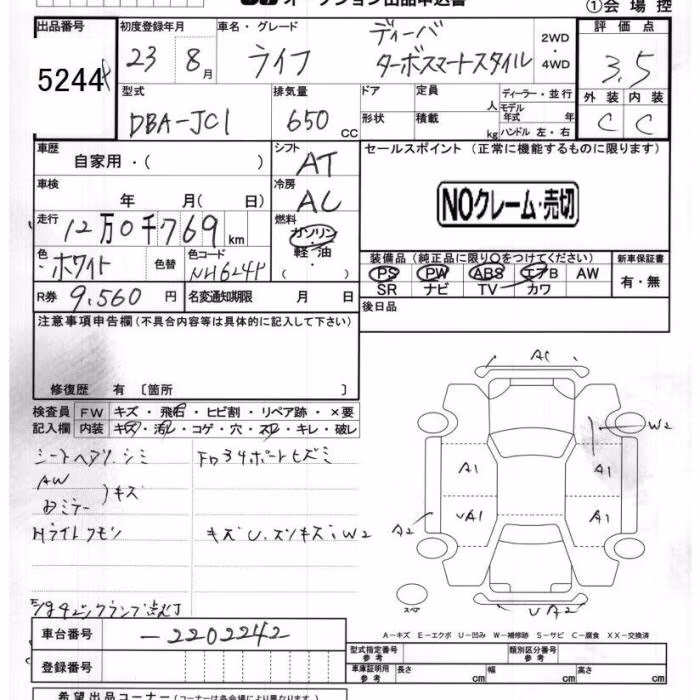 オークション出品申込書
①会場控
出品番号 初度登録年月 車名・グレード 2WD・4WD 評価点
5244
23 8月 ライフ ディーバ ターボスマートスタイル 3.5
外装 内装
C C
型式 排気量 ドア 定員 人 ディーラー・並行
DBA-JC1 650 cc 形状 積載 kg モデル年式 年 ハンドル 左・右
車歴 シフト セールスポイント (正常に機能するものに限ります)
自家用・( ) AT
車検 年 月( 日) 冷房 AC
NOクレーム・売切
走行 12万0千769km 燃料 ガソリン・軽油・( )
色 ホワイト 色替 色コード NH624P
装備品 (純正品に限り○をつけてください) 新車保証書
PS PW ABS エアB AW 有・無
SR ナビ TV カワ
R券 9,560円 名変通知期限 月 日
後日品
注意事項申告欄(不具合内容等は具体的に記入して下さい)
修復歴 有 〔箇所 〕
検査員 FW キズ・飛石・ヒビ割・リペア跡・×要
記入欄 内装 キズ・汚レ・コゲ・穴・スレ・キレ・破レ
AW
キズ
AC
W2
A1 A1
UA1 A1
A2
UA2
A-キズ E-エクボ U-凹み W-補修跡 S-サビ C-腐食 XX-交換済
車台番号 -2202242
登録番号
型式指定番号 参考 類別区分番号 参考
車庫証明用 参考 長さ cm 幅 cm 高さ cm
希望出品コーナー(コーナーは各会場により異なります)